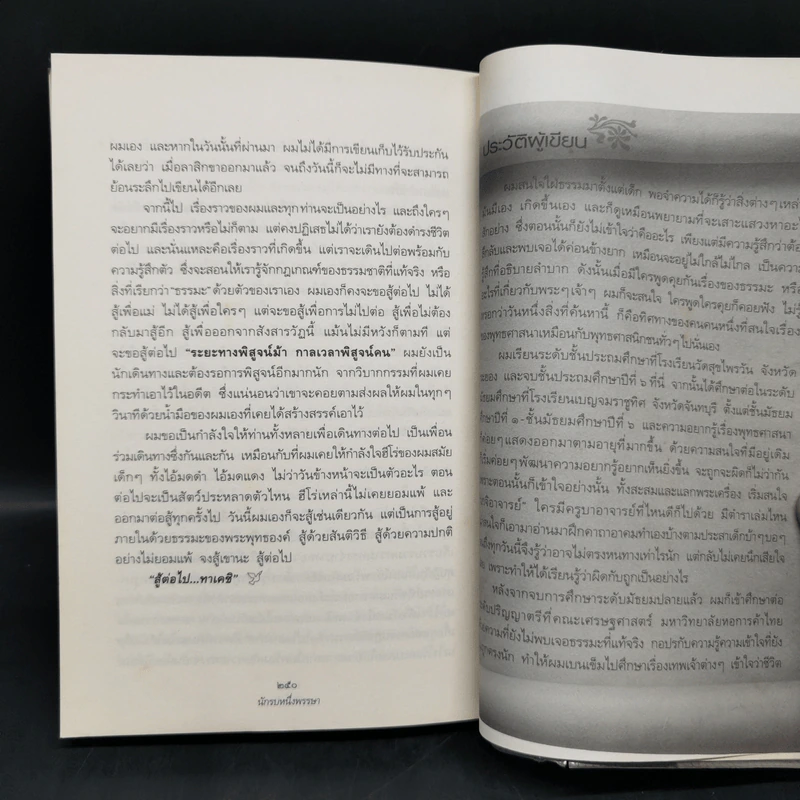 ผมเอง และหากในวันนั้นที่ผ่านมา ผมไม่ได้มีการเขียนเก็บไว้รับประกัน
ได้เลยว่า เมื่อลาสิกขาออกมาแล้ว จนถึงวันนี้ก็จะไม่มีทางที่จะสามารถ
ย้อนระลึกไปเขียนได้อีกเลย
จากนี้ไป เรื่องราวของผมและทุกท่านจะเป็นอย่างไร และถึงใครๆ
จะอยากมีเรื่องราวหรือไม่ก็ตาม แต่คงปฏิเสธไม่ได้ว่าเรายังต้องดำรงชีวิต
ต่อไป และนั่นแหละคือเรื่องราวที่เกิดขึ้น แต่เราจะเดินไปต่อพร้อมกับ
ความรู้สึกตัว ซึ่งจะสอนให้เรารู้จักกฎเกณฑ์ของธรรมชาติที่แท้จริง หรือ
สิ่งที่เรียกว่า"ธรรมะ"ด้วยตัวของเราเอง ผมเองก็คงจะขอสู้ต่อไป ไม่ได้
สู้เพื่อแม่ ไม่ได้สู้เพื่อใครๆ แต่จะขอสู้เพื่อการไม่ไปต่อ สู้เพื่อไม่ต้อง
กลับมาสู้อีก สู้เพื่อออกจากสังสารวัฏนี้ แม้นไม่มีหวังก็ตามที แต่
จะขอสู้ต่อไป "ระยะทางพิสูจน์ม้า กาลเวลาพิสูจน์คน" ผมยังเป็น
นักเดินทางและต้องรอการพิสูจน์อีกมากนัก จากวิบากกรรมที่ผมเคย
กระทำเอาไว้ในอดีต ซึ่งแน่นอนว่าเขาจะคอยตามส่งผลให้ผมในทุกๆ
วินาทีด้วยน้ำมือของผมเองที่เคยได้สร้างสรรค์เอาไว้
ผมขอเป็นกำลังใจให้ท่านทั้งหลายเพื่อเดินทางต่อไป เป็นเพื่อน
ร่วมเดินทางซึ่งกันและกัน เหมือนกับที่ผมเคยให้กำลังใจฮีโร่ของผมสมัย
เด็กๆ ทั้งไอ้มดดำ ไอ้มดแดง ไม่ว่าวันข้างหน้าจะเป็นตัวอะไร ตอน
ต่อไปจะเป็นสัตว์ประหลาดตัวไหน ฮีโร่เหล่านี้ไม่เคยยอมแพ้ และ
ออกมาต่อสู้ทุกครั้งไป วันนี้ผมเองก็จะสู้เช่นเดียวกัน แต่เป็นการสู้อยู่
ภายในด้วยธรรมะของพระพุทธองค์ สู้ด้วยสันติวิธี สู้ด้วยความปกติ
อย่างไม่ยอมแพ้ จงสู้เขานะ สู้ต่อไป
"สู้ต่อไป...ทาเคชิ"
๒๕๐
นักรบหนึ่งพรรษา
ประวัติผู้เขียน
ผมสนใจใฝ่ธรรมมาตั้งแต่เด็ก พอจำความได้ก็รู้ว่าสิ่งต่างๆเหล่า
มันมีเอง เกิดขึ้นเอง และก็ดูเหมือนพยายามที่จะเสาะแสวงหาอะไร
อย่าง ซึ่งตอนนั้นก็ยังไม่เข้าใจว่าคืออะไร เพียงแต่มีความรู้สึกว่าต้อง
ลึกลับและพบเจอได้ค่อนข้างยาก เหมือนจะอยู่ไม่ใกล้ไม่ไกล เป็นความ
รู้สึกที่อธิบายลำบาก ดังนั้นเมื่อมีใครพูดคุยกันเรื่องของธรรมะ หรือ
อะไรที่เกี่ยวกับพระๆเจ้าๆ ผมก็จะสนใจ ใครพูดใครคุยก็คอยฟัง ไม่รู้
หรอกว่าวันหนึ่งสิ่งที่ค้นหานี้ ก็คือทิศทางของคนคนหนึ่งที่สนใจเรื่อง
ของพุทธศาสนาเหมือนกับพุทธศาสนิกชนทั่วๆไปนั่นเอง
ผมเรียนระดับชั้นประถมศึกษาที่โรงเรียนวัดสุขไพรวัน จังหวัด
ระยอง และจบชั้นประถมศึกษาปีที่ ๖ ที่นี่ จากนั้นได้ศึกษาต่อในระดับ
มัธยมศึกษาที่โรงเรียนเบญจมราชูทิศ จังหวัดจันทบุรี ตั้งแต่ชั้นมัธยม
ศึกษาปีที่ ๑-ชั้นมัธยมศึกษาปีที่ ๖ และความอยากรู้เรื่องพุทธศาสนา
ค่อยๆแสดงออกมาตามอายุที่มากขึ้น ด้วยความสนใจที่มีอยู่เดิม
เริ่มค่อยๆพัฒนาความอยากรู้อยากเห็นยิ่งขึ้น จะถูกจะผิดก็ไม่ว่ากัน
เพราะตอนนั้นก็เข้าใจอย่างนั้น ทั้งสะสมและแลกพระเครื่อง เริ่มสนใจ
อาจารย์" ใครมีครูบาอาจารย์ที่ไหนดีก็ไปด้วย มีตำราเล่มไหน
สนใจก็เอามาอ่านมาฝึกคาถาอาคมทำเองบ้างตามประสาเด็กบ้าๆบอๆ
ถึงทุกวันนี้จึงรู้ว่าอาจไม่ตรงหนทางเท่าไรนัก แต่กลับไม่เคยนึกเสียใจ
เลย เพราะทำให้ได้เรียนรู้ว่าผิดกับถูกเป็นอย่างไร
หลังจากจบการศึกษาระดับมัธยมปลายแล้ว ผมก็เข้าศึกษาต่อ
ระดับปริญญาตรีที่คณะเศรษฐศาสตร์ มหาวิทยาลัยหอการค้าไทย
ด้วยความที่ยังไม่พบเจอธรรมะที่แท้จริง กอปรกับความรู้ความเข้าใจที่ยัง
ถูกตรงนัก ทำให้ผมเบนเข็มไปศึกษาเรื่องเทพเจ้าต่างๆ เข้าใจว่าชีวิต